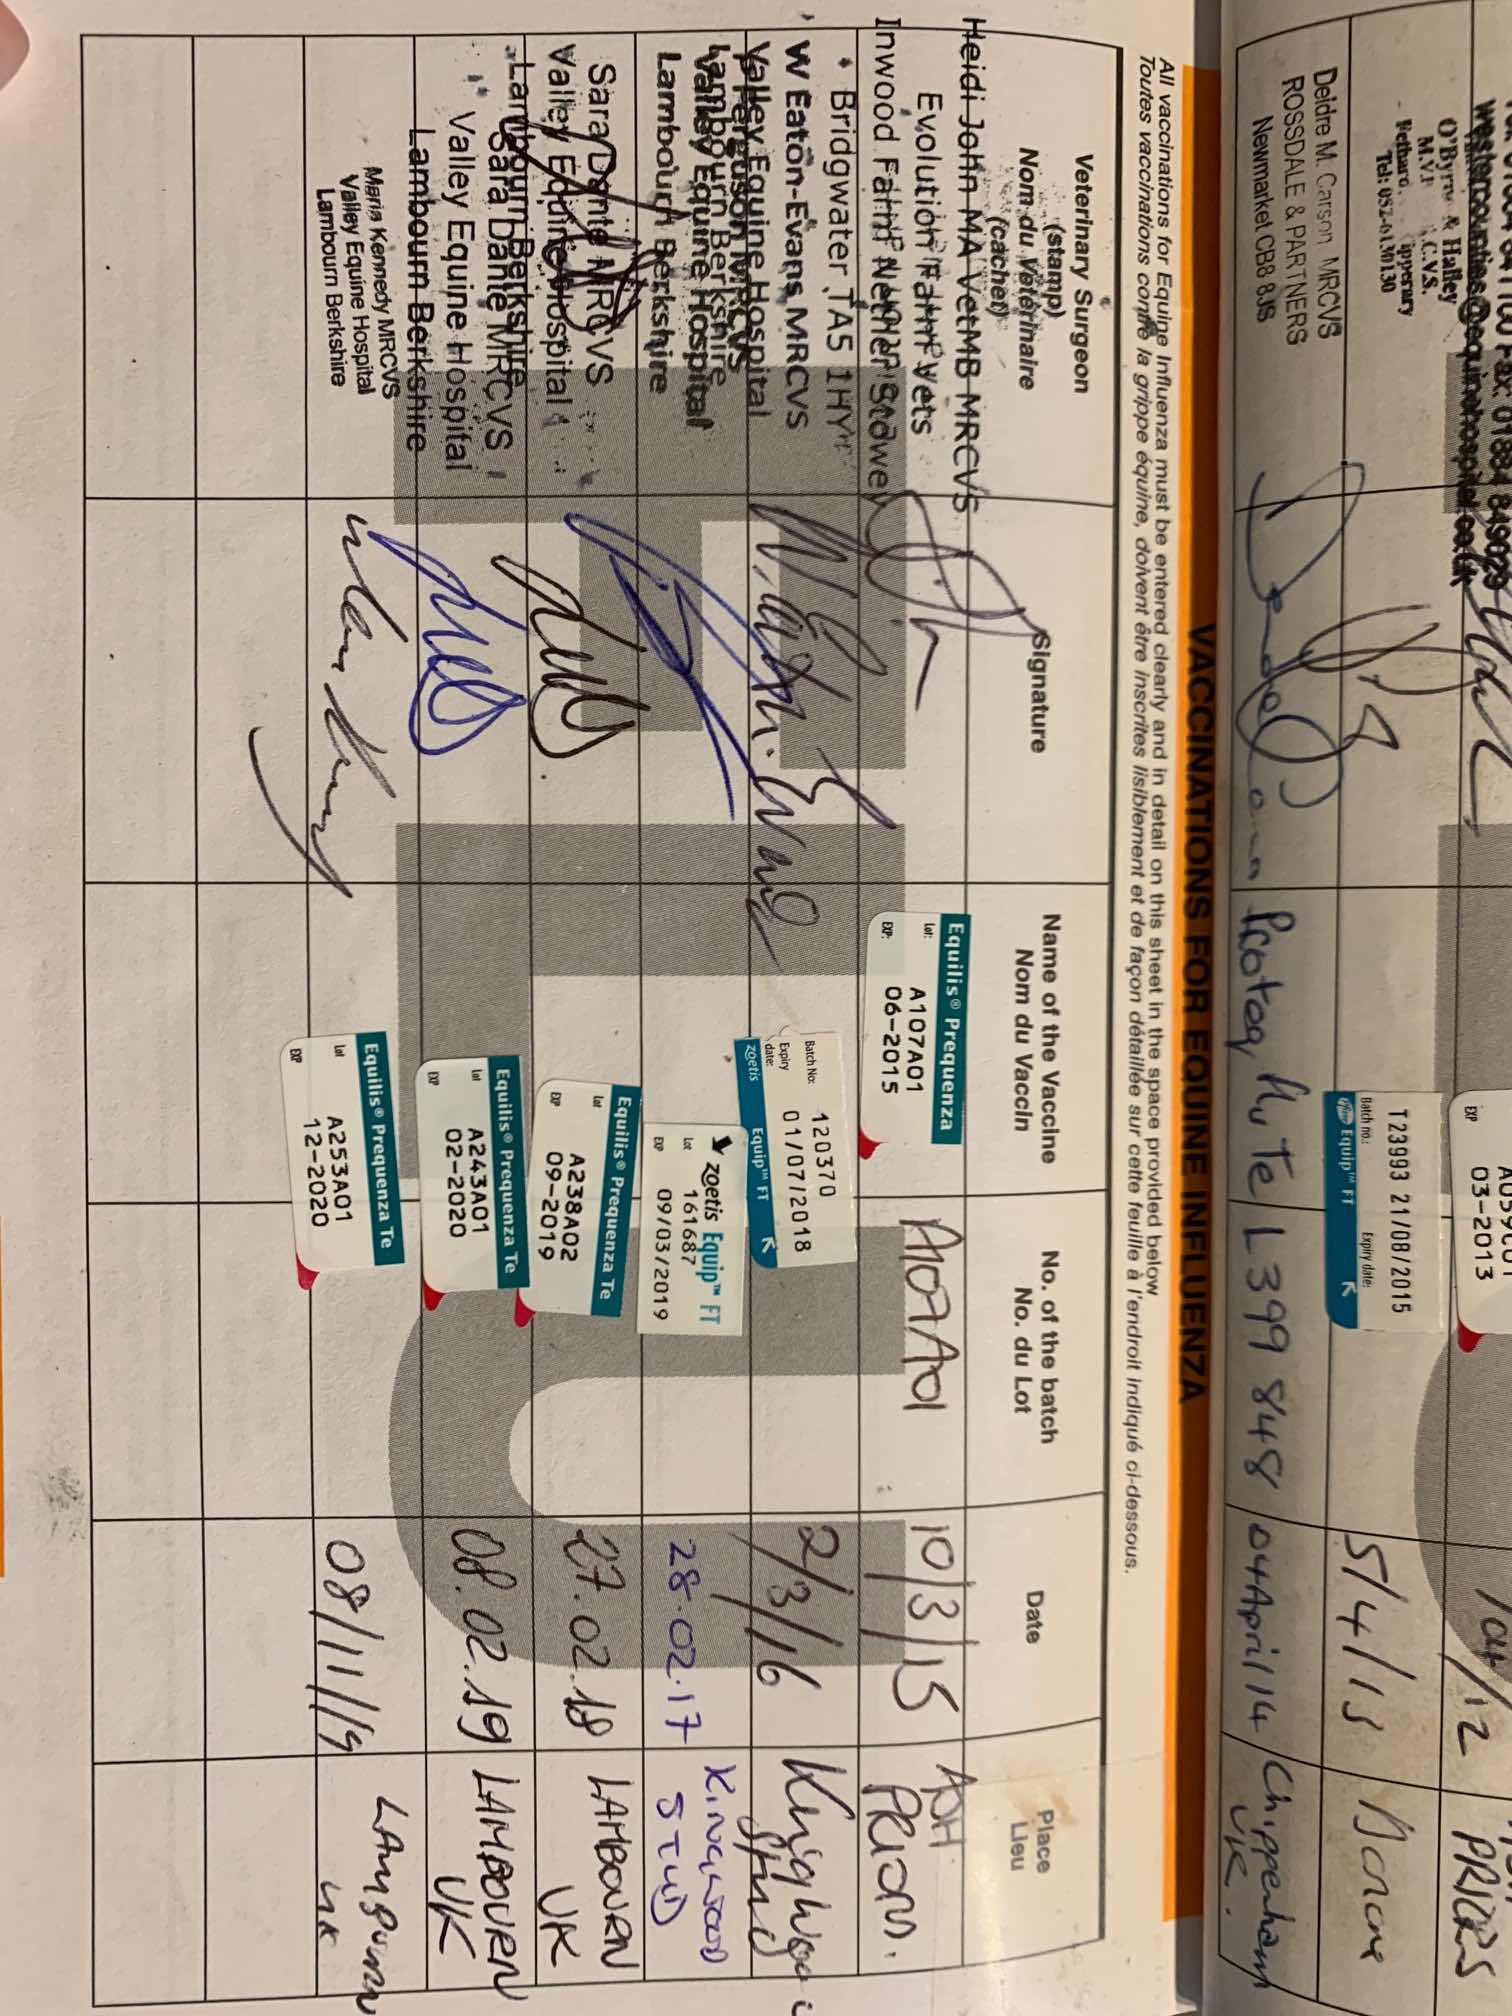 westerncounties@equinehospital.co.uk
EXP
03-2013
PRIORS
O'Byrne & Halley
M.V.P. C.V.S.
Fethard. ipperary
Tel: 052-6130130
T23993 21/08/2015
Batch no.:
Expiry date:
Equip™ FT
5/4/13
Deidre M. Carson, MRCVS
ROSSDALE & PARTNERS
Newmarket CB8 8JS
Proteq Flu Te
L399 848
04 April 14
Chippenham
UK.
VACCINATIONS FOR EQUINE INFLUENZA
All vaccinations for Equine Influenza must be entered clearly and in detail on this sheet in the space provided below
Toutes vaccinations contre la grippe équine, doivent être inscrites lisiblement et de façon détaillée sur cette feuille à l'endroit indiqué ci-dessous.
Veterinary Surgeon
(stamp)
Nom du Vétérinaire
(cachet)
Signature
Name of the Vaccine
Nom du Vaccin
No. of the batch
No. du Lot
Date
Place
Lieu
Heidi John MA VetMB MRCVS
Evolution Farm Vets
Inwood Farm Nether Stowey
Bridgwater TA5 1HY
Equilis® Prequenza
Lot: A107A01
EXP: 06-2015
A107A01
10/3/15
ASH
PRIORS.
W Eaton-Evans MRCVS
Valley Equine Hospital
Lambourn Berkshire
Batch No: 120370
Expiry date: 01/07/2018
zoetis Equip™ FT
2/3/16
Kingwood
Stud
P Ferguson MRCVS
Valley Equine Hospital
Lambourn Berkshire
zoetis Equip™ FT
Lot 161687
EXP 09/03/2019
28.02.17
KINGWOOD
STUD
Sara Dante MRCVS
Valley Equine Hospital
Lambourn Berkshire
Equilis® Prequenza Te
Lot A238A02
EXP 09-2019
27.02.18
LAMBOURN
UK
Sara Dante MRCVS
Valley Equine Hospital
Lambourn Berkshire
Equilis® Prequenza Te
Lot A243A01
EXP 02-2020
08.02.19
LAMBOURN
UK
Maria Kennedy MRCVS
Valley Equine Hospital
Lambourn Berkshire
Equilis® Prequenza Te
Lot A253A01
EXP 12-2020
08/11/19
LAMBOURN
UK